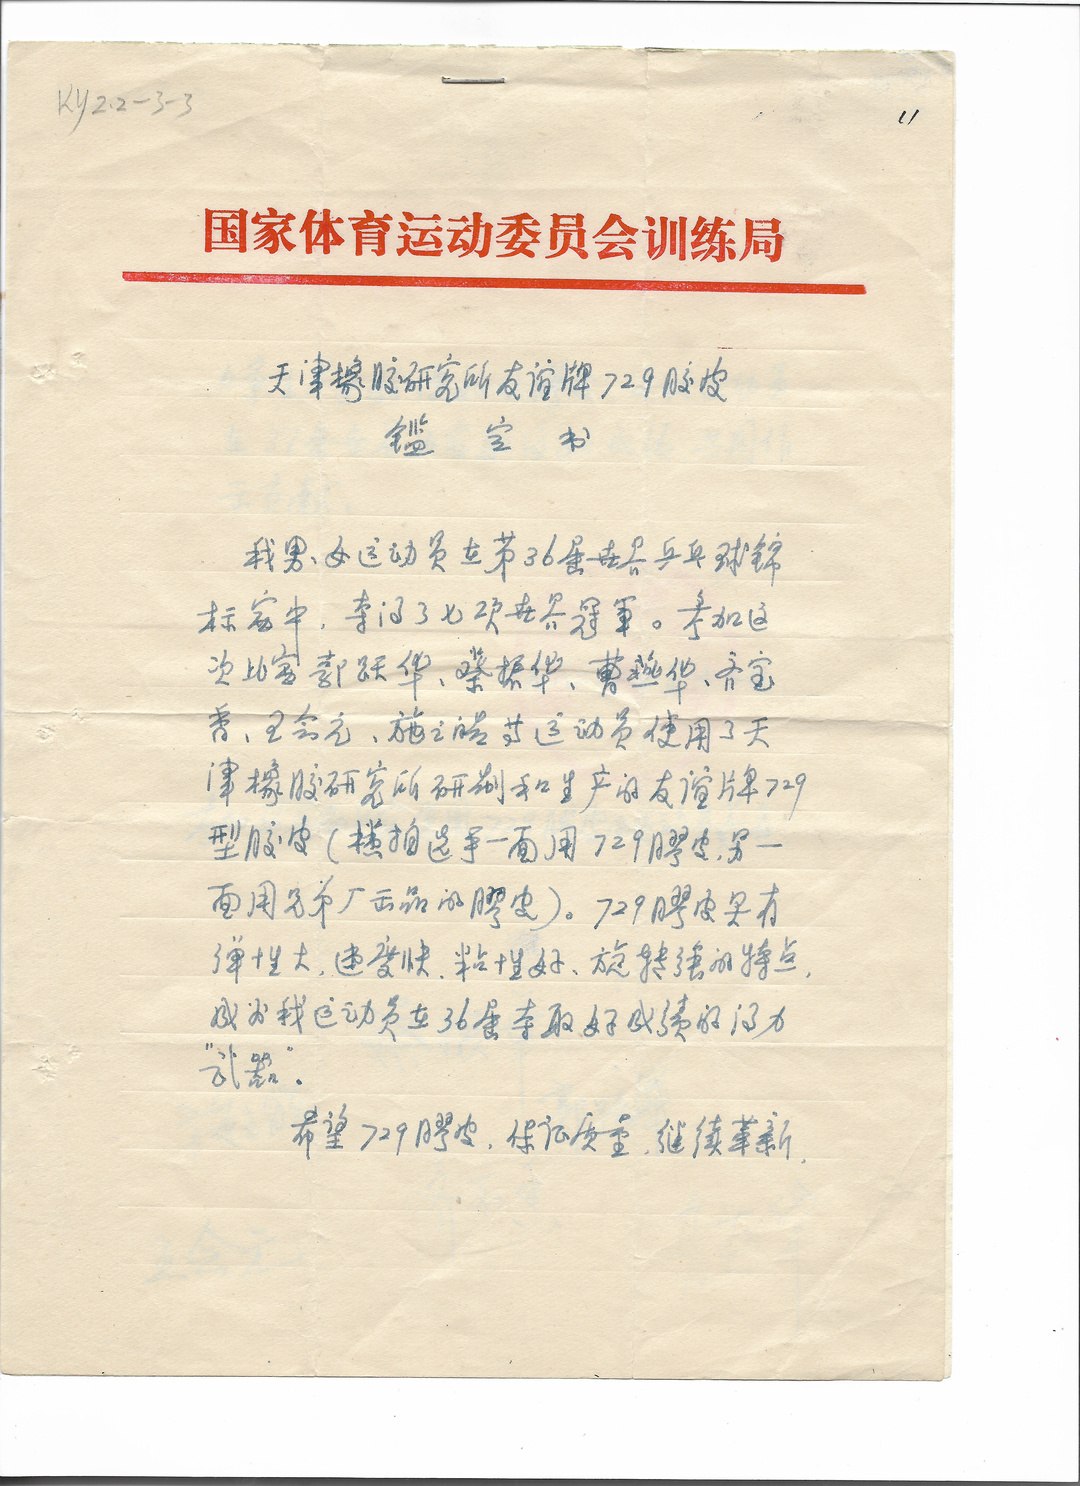 KY22-3-3
11
国家体育运动委员会训练局
天津橡胶研究所友谊牌729胶皮
鑑定书
我男、女运动员在第36届世界乒乓球锦
标赛中，夺得了七项世界冠軍。参加这
次比赛郭跃华、蔡振华、曹燕华、齐宝
香、王会元、施之皓等运动员使用了天
津橡胶研究所研制和生产的友谊牌729
型胶皮（横拍选手一面用729膠皮，另一
面用兄弟厂出品的膠皮）。729膠皮具有
弹性大，速度快，粘性好、旋转强的特点，
成为我运动员在36届夺取好成绩的得力
“武器”。
希望729膠皮，保证质量，继续革新，